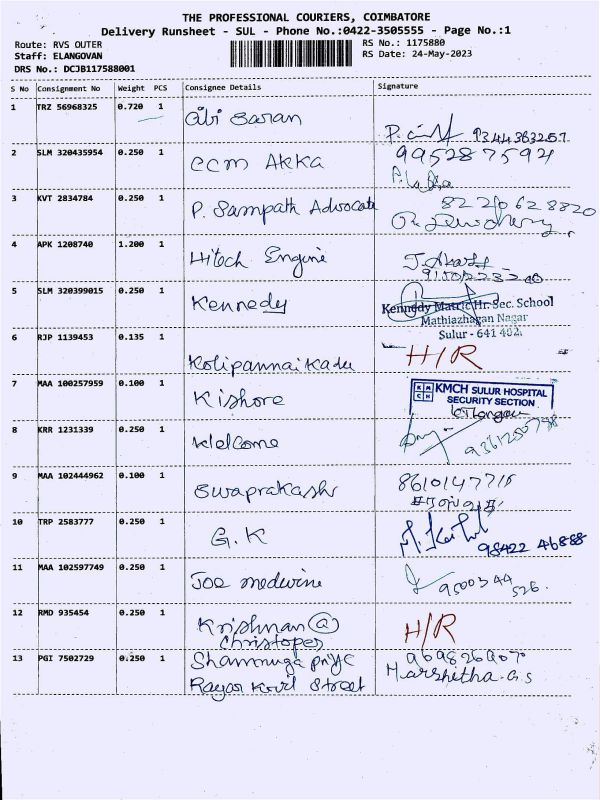 THE PROFESSIONAL COURIERS, COIMBATORE
Delivery Runsheet - SUL - Phone No.:0422-3505555 - Page No.:1
Route: RVS OUTER
Staff: ELANGOVAN
DRS No.: DCJB117588001
RS No.: 1175880
RS Date: 24-May-2023
S No Consignment No Weight PCS Consignee Details Signature
1 TRZ 56968325 0.720 1 Cibi Saran
9344363257
2 SLM 320435954 0.250 1 CCM Akka
995287594
3 KVT 2834784 0.250 1 P. Sampath Advocate
8220628820
4 APK 1208740 1.200 1 Hitech Engine
5 SLM 320399015 0.250 1 Kennedy
Kennedy Matric Hr. Sec. School
Mathiazhagan Nagar
Sulur - 641 402.
6 RJP 1139453 0.135 1 Kolipannaikadu H/R
7 MAA 100257959 0.100 1 Kishore
KMCH SULUR HOSPITAL
SECURITY SECTION
8 KRR 1231339 0.250 1 Welcome
9361250798
9 MAA 102444962 0.100 1 Swaprakash
8610147716
10 TRP 2583777 0.250 1 G.K
98422 46888
11 MAA 102597749 0.250 1 Joe medicine
9500344
526.
12 RMD 935454 0.250 1 Krishnan @ H/R
Christoper
13 PGI 7502729 0.250 1 Shanmuga priya
Harshitha. G S
Rayar Kovil Street